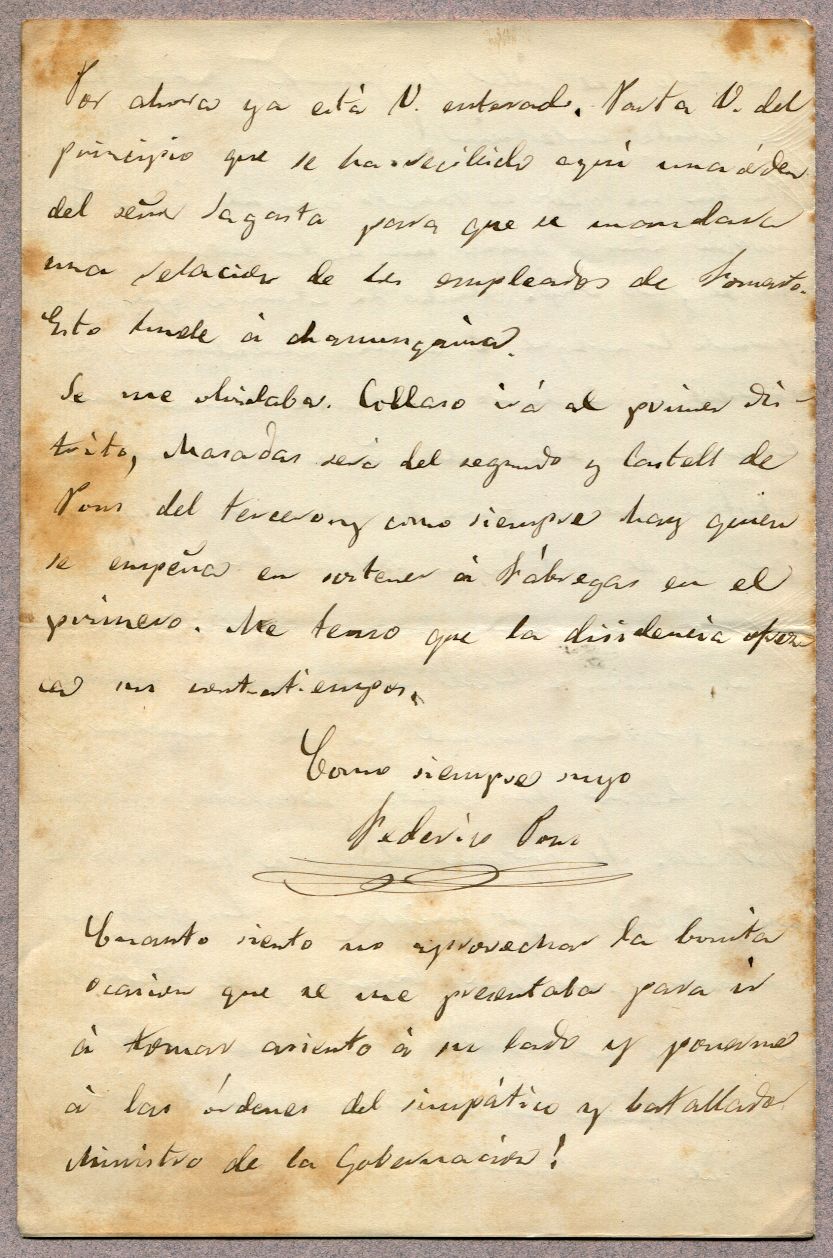 Por ahora ya está V. enterado. Parta V. del
principio que se ha recibido aquí una órden
del señor Sagasta para que se mandara
una relacion de los empleados de Fomento.
Esto huele á chamusquina.
Se me olvidaba. Collaso irá al primer dis-
trito, Masadas será del segundo y Castell de
Pons del tercero y como siempre hay quien
se empeña en sostener á Fábregas en el
primero. Me temo que la disidencia ofrez
ca un contratiempo.
Como siempre suyo
Federico Pons
Cuanto siento no aprovechar la bonita
ocasion que se me presentaba para ir
á tomar asiento á su lado y ponerme
á las órdenes del simpático y batallador
Ministro de la Gobernacion!